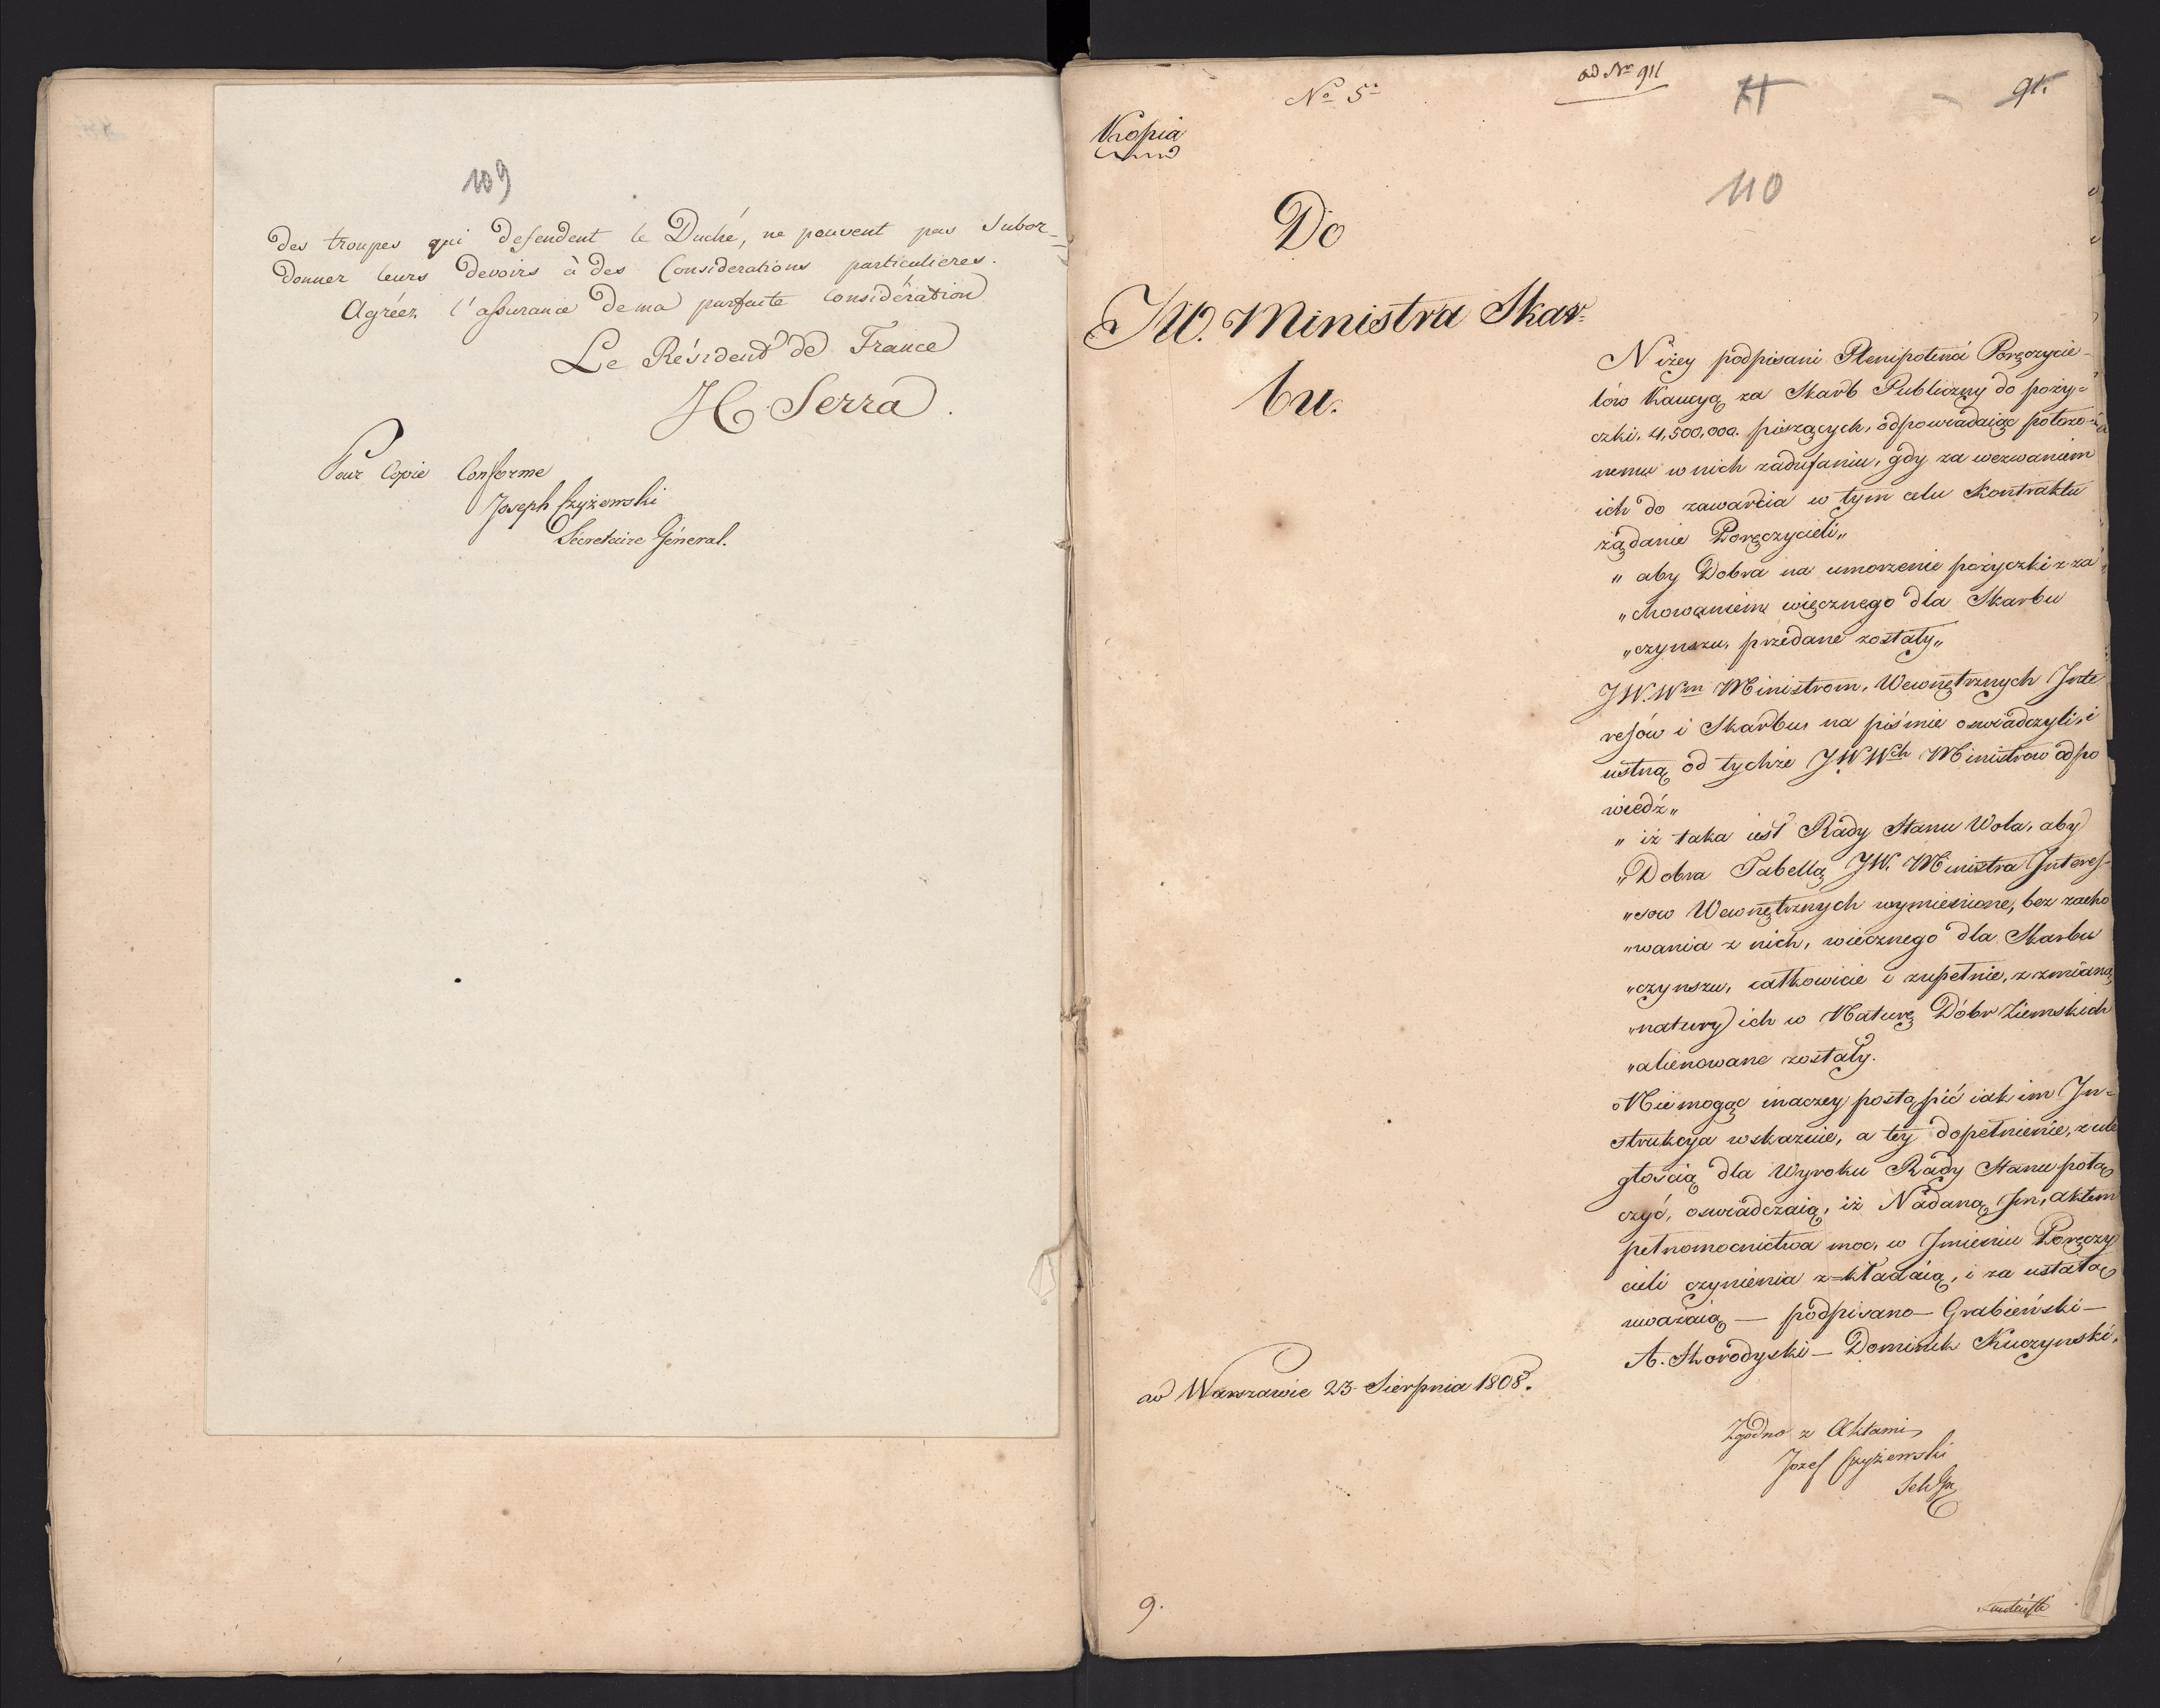 109
des troupes qui defendent le Duché, ne peuvent pas Subor-
donner leurs devoirs à des Considerations particulieres.
Agréez l'assurance de ma parfaite Considération
Le Résident de France
Serra.
Pour Copie Conforme
Joseph Czyżewski
Sécretaire Général.
No 5o
ad No 911
91.
Kopia
110
Do
JW. Ministra Skar-
bu.
Niżey podpisani Plenipotenci Poręczycie-
lów Kaucyą za Skarb Publiczny do poży-
czki, 4,500,000. piszących, odpowiadaiąc położo-
nemu w nich zadufaniu, gdy za wezwaniem
ich do zawarcia w tym celu Kontraktu
żądanie Poręczycieli„
„ aby Dobra na umorzenie pożyczki z za
„chowaniem wiecznego dla Skarbu
„czynszu, przedane zostały„
JW.Wm Ministrom, Wewnętrznych Inte
resów i Skarbu, na piśmie oswiadczyli, i
ustną od tychże JWWch Ministrow odpo
wiedź„
„ iż taka iest Rady Stanu Wola, aby
„Dobra Tabellą JW. Ministra Interes-
„sow Wewnętrznych wymienione, bez zacho
„wania z nich, wiecznego dla Skarbu
„czynszu, całkowicie i zupełnie, z zmianą
„natury ich w Naturę Dóbr Ziemskich
„alienowane zostały.
Niemogąc inaczey postąpić iak im In-
strukcya wskazuie, a tey dopełnienie, z ule
głością dla Wyroku Rady Stanu połą
czyć, oswiadczaią, iż Nadaną Im, aktem
pełnomocnictwa moc, w Imieniu Poręczy
cieli czynienia składaią, i za ustałą
uważaią — podpisano — Grabieński —
A. Horodyski — Dominik Kuczynski.
w Warszawie 23 Sierpnia 1808.
Zgodno z Aktami
Jozef Czyżewski
9.